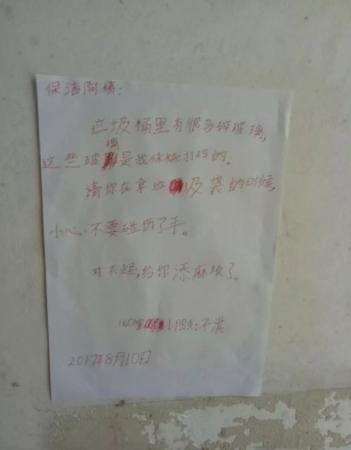 保洁阿姨:
垃圾桶里有很多碎玻璃,
这些玻璃是我妹妹打碎的。
请你在拿垃圾袋的时候,
小心、不要碰伤了手。
对不起,给你添麻烦了。
小朋友:
2017年8月10日